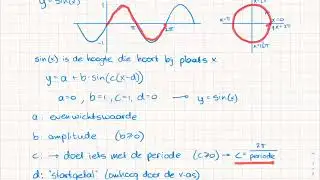 y = sin(x)
1
π
2π
-1
x=½π
x=π
x=0
x=2π
x=1½π
sin(x) is de hoogte die hoort bij plaats x
y = a + b·sin(c(x-d))
a=0, b=1, c=1, d=0 → y=sin(x)
a: evenwichtswaarde
b: amplitude (b≥0)
c: → doet iets met de periode (c≥0) → c = 2π/periode
d: "startgetal" (omhoog door de v-as)